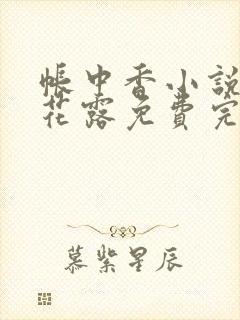 帳中香小說
花露免費完
慕紫星辰